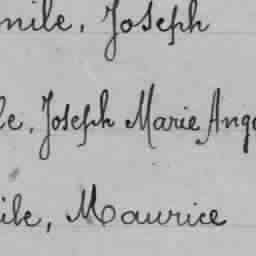 mile, Joseph
le, Joseph Marie Ang
ile, Maurice